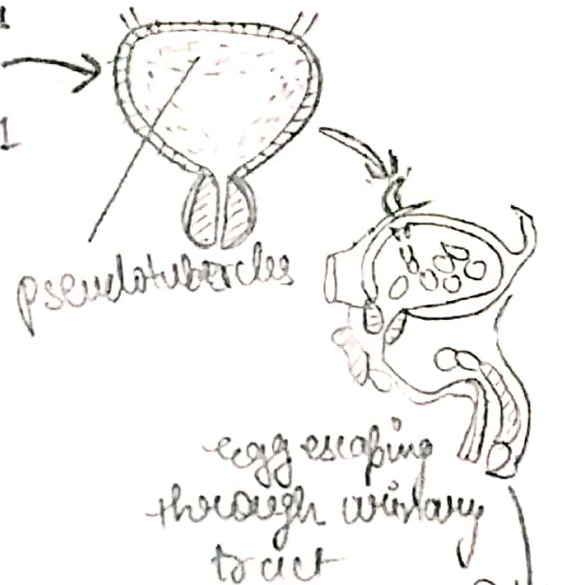 pseudotubercles
egg escaping
through urinary
tract